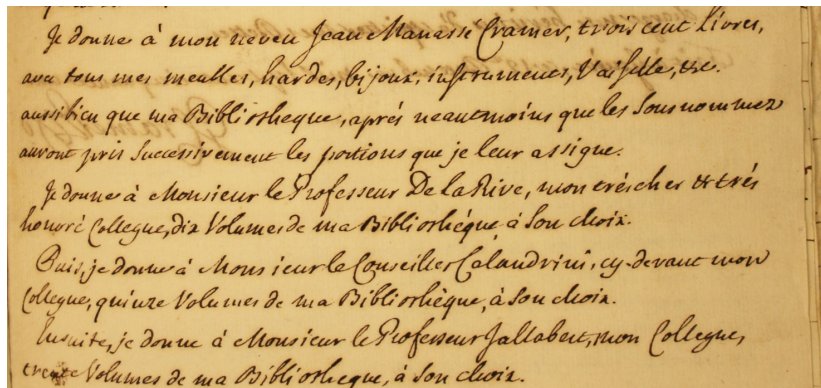 Je donne à mon neveu Jean Manasse Cramer, trois cent Livres,
avec tous mes meubles, hardes, bijoux, instruments, Vaisselle, &c.
aussi bien que ma Bibliotheque, aprés neautmoins que les Sousnommez
auront pris Successivement les portions que je leur assigne.
Je donne à Monsieur le Professeur De la Rive, mon trés cher & trés
honoré Collegue, dix Volumes de ma Bibliothéque, à Son choix.
Puis, je donne à Monsieur le Conseiller Calandrini, cy-devant mon
Collegue, quinze Volumes de ma Bibliothèque, à Son choix.
Ensuite, je donne à Monsieur le Professeur Jallabert, mon Collegue,
trente Volumes de ma Bibliotheque, à Son choix.